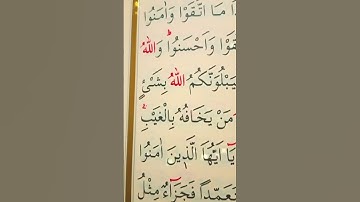 ذَا مَا اتَّقَوْا وَاٰمَنُوا
تَّقَوْا وَاَحْسَنُوا وَاللّٰهُ
لَيَبْلُوَنَّكُمُ اللّٰهُ بِشَيْءٍ
مَنْ يَخَافُهُ بِالْغَيْبِ
يَٓا اَيُّهَا الَّذ۪ينَ اٰمَنُوا
مُتَعَمِّداً فَجَزَٓاءٌ مِثْلُ